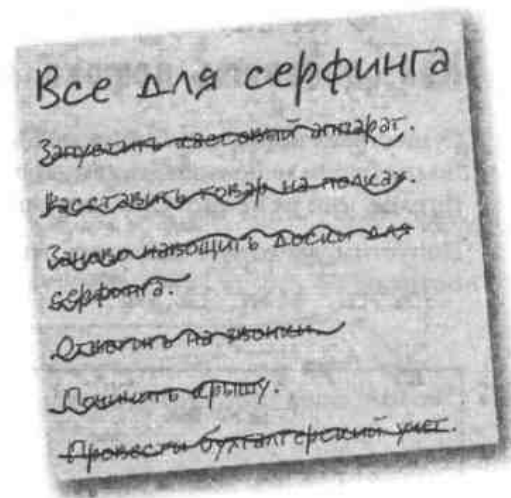 Все для серфинга
Запустить кассовый аппарат.
Расставить товар на полках.
Заново навощить доски для
серфинга.
Ответить на звонки.
Починить крышу.
Провести бухгалтерский учет.